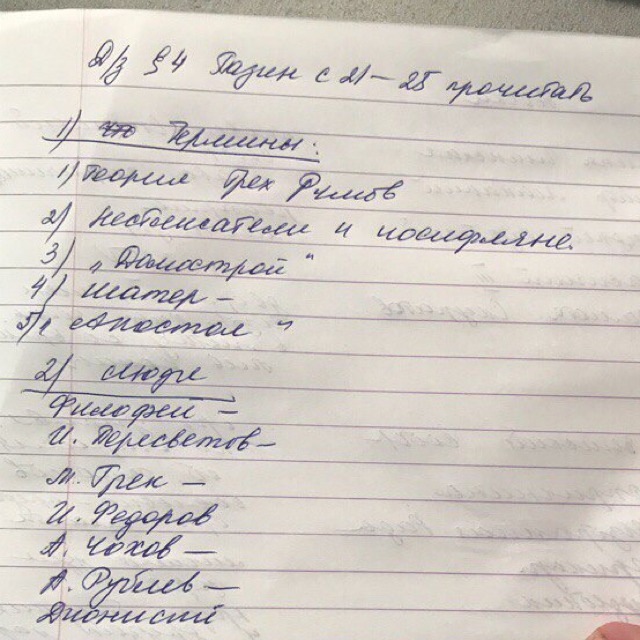 Д/з § 4 Пазин с 21-25 прочитать
1) Термины:
1) теория Трех Римов
2) Нестяжатели и иосифляне.
3) „Домострой"
4) Шатер -
5) „Апостол"
2) Люди
Филофей -
И. Пересветов -
М. Грек -
И. Федоров
А. Чохов -
А. Рублев -
Дионисий